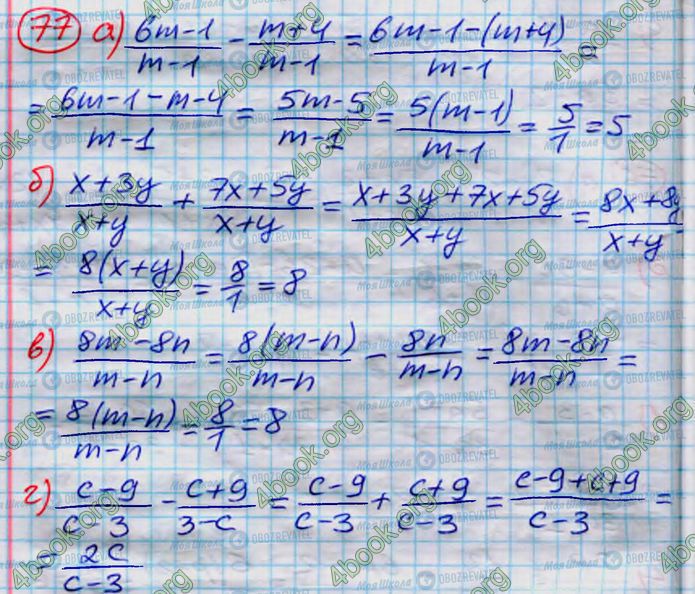 77 а) (6m-1)/(m-1) - (m+4)/(m-1) = (6m-1-(m+4))/(m-1) =
= (6m-1-m-4)/(m-1) = (5m-5)/(m-1) = 5(m-1)/(m-1) = 5/1 = 5
б) (x+3y)/(x+y) + (7x+5y)/(x+y) = (x+3y+7x+5y)/(x+y) = (8x+8y)/(x+y)
= 8(x+y)/(x+y) = 8/1 = 8
в) (8m-8n)/(m-n) = 8(m-n)/(m-n) - 8n/(m-n) = (8m-8n)/(m-n) =
= 8(m-n)/(m-n) = 8/1 = 8
г) (c-9)/(c-3) - (c+9)/(3-c) = (c-9)/(c-3) + (c+9)/(c-3) = (c-9+c+9)/(c-3) =
= 2c/(c-3)
4book.org
Моя Школа
OBOZREVATEL